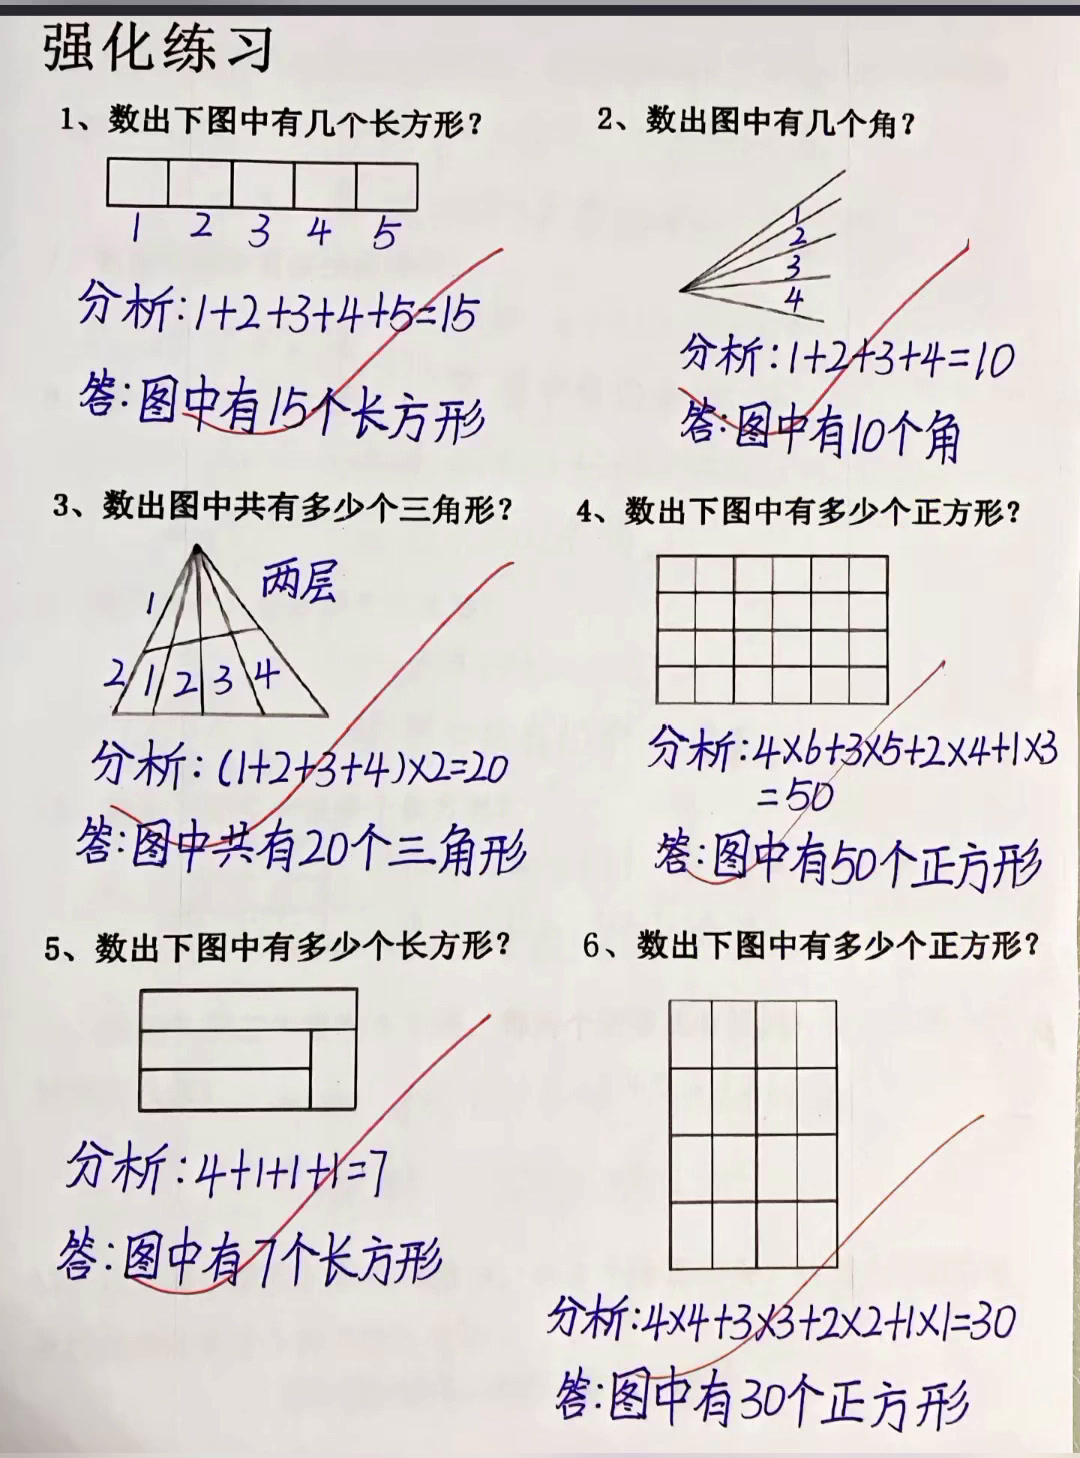 强化练习
1、数出下图中有几个长方形？
1 2 3 4 5
分析:1+2+3+4+5=15
答:图中有15个长方形
2、数出图中有几个角？
1
2
3
4
分析:1+2+3+4=10
答:图中有10个角
3、数出图中共有多少个三角形？
两层
1
2 1 2 3 4
分析:(1+2+3+4)×2=20
答:图中共有20个三角形
4、数出下图中有多少个正方形？
分析:4×6+3×5+2×4+1×3
=50
答:图中有50个正方形
5、数出下图中有多少个长方形？
分析:4+1+1+1=7
答:图中有7个长方形
6、数出下图中有多少个正方形？
分析:4×4+3×3+2×2+1×1=30
答:图中有30个正方形